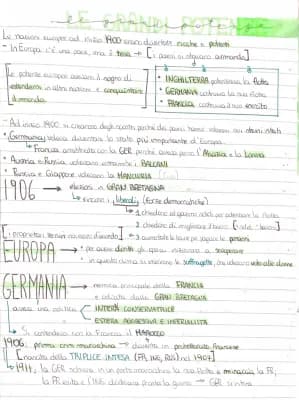 le grandi potenze
Le nazioni europee ad inizio 1900 erano diventate ricche e potenti
- In Europa c'è una pace, ma è tesa → [i paesi si stavano armando]
Le potenze europee avevano il sogno di
estendersi in altre nazioni e conquistare
il mondo.
• INGHILTERRA potenziava la flotta
• GERMANIA costruiva la sua flotta
• FRANCIA costruiva il suo esercito
- Ad inizio 1900 si creano degli perché dei paesi
• Germania voleva diventare lo stato più importante d'Europa
Francia arrabbiata con la GER perché aveva perso l'Alsazia e la Lorena
• Austria e Russia volevano entrambe i BALCANI
• Russia e Giappone volevano la MANCIURIA
1906 → elezioni in GRAN BRETAGNA
vincono i liberali (forze democratiche)
1 chiedere al governo soldi per potenziare la flotta
2 chiedere di migliorare il lavoro
3 aumentare le tasse per pagare le pensioni
[i proprietari terrieri non erano d'accordo]
EUROPA → per avere diritti gli operai iniziarono a scioperare
in questo clima si inserirono le suffragette, che volevano voto alle donne
GERMANIA → nemica principale della FRANCIA
e odiata dalla GRAN BRETAGNA
aveva una politica INTERNA CONSERVATRICE
ESTERA AGGRESSIVA E IMPERIALISTA
Si contendeva con la Francia il MAROCCO
1906: prima crisi marocchina → diventa un protettorato francese
[nascita della TRIPLICE INTESA (FR, ING, RUS) nel 1907]
1911, la GER schiera in un porto marocchino la sua flotta e minaccia la FR,
la FR evita e l'ING dichiara pronta la guerra → GER si ritira